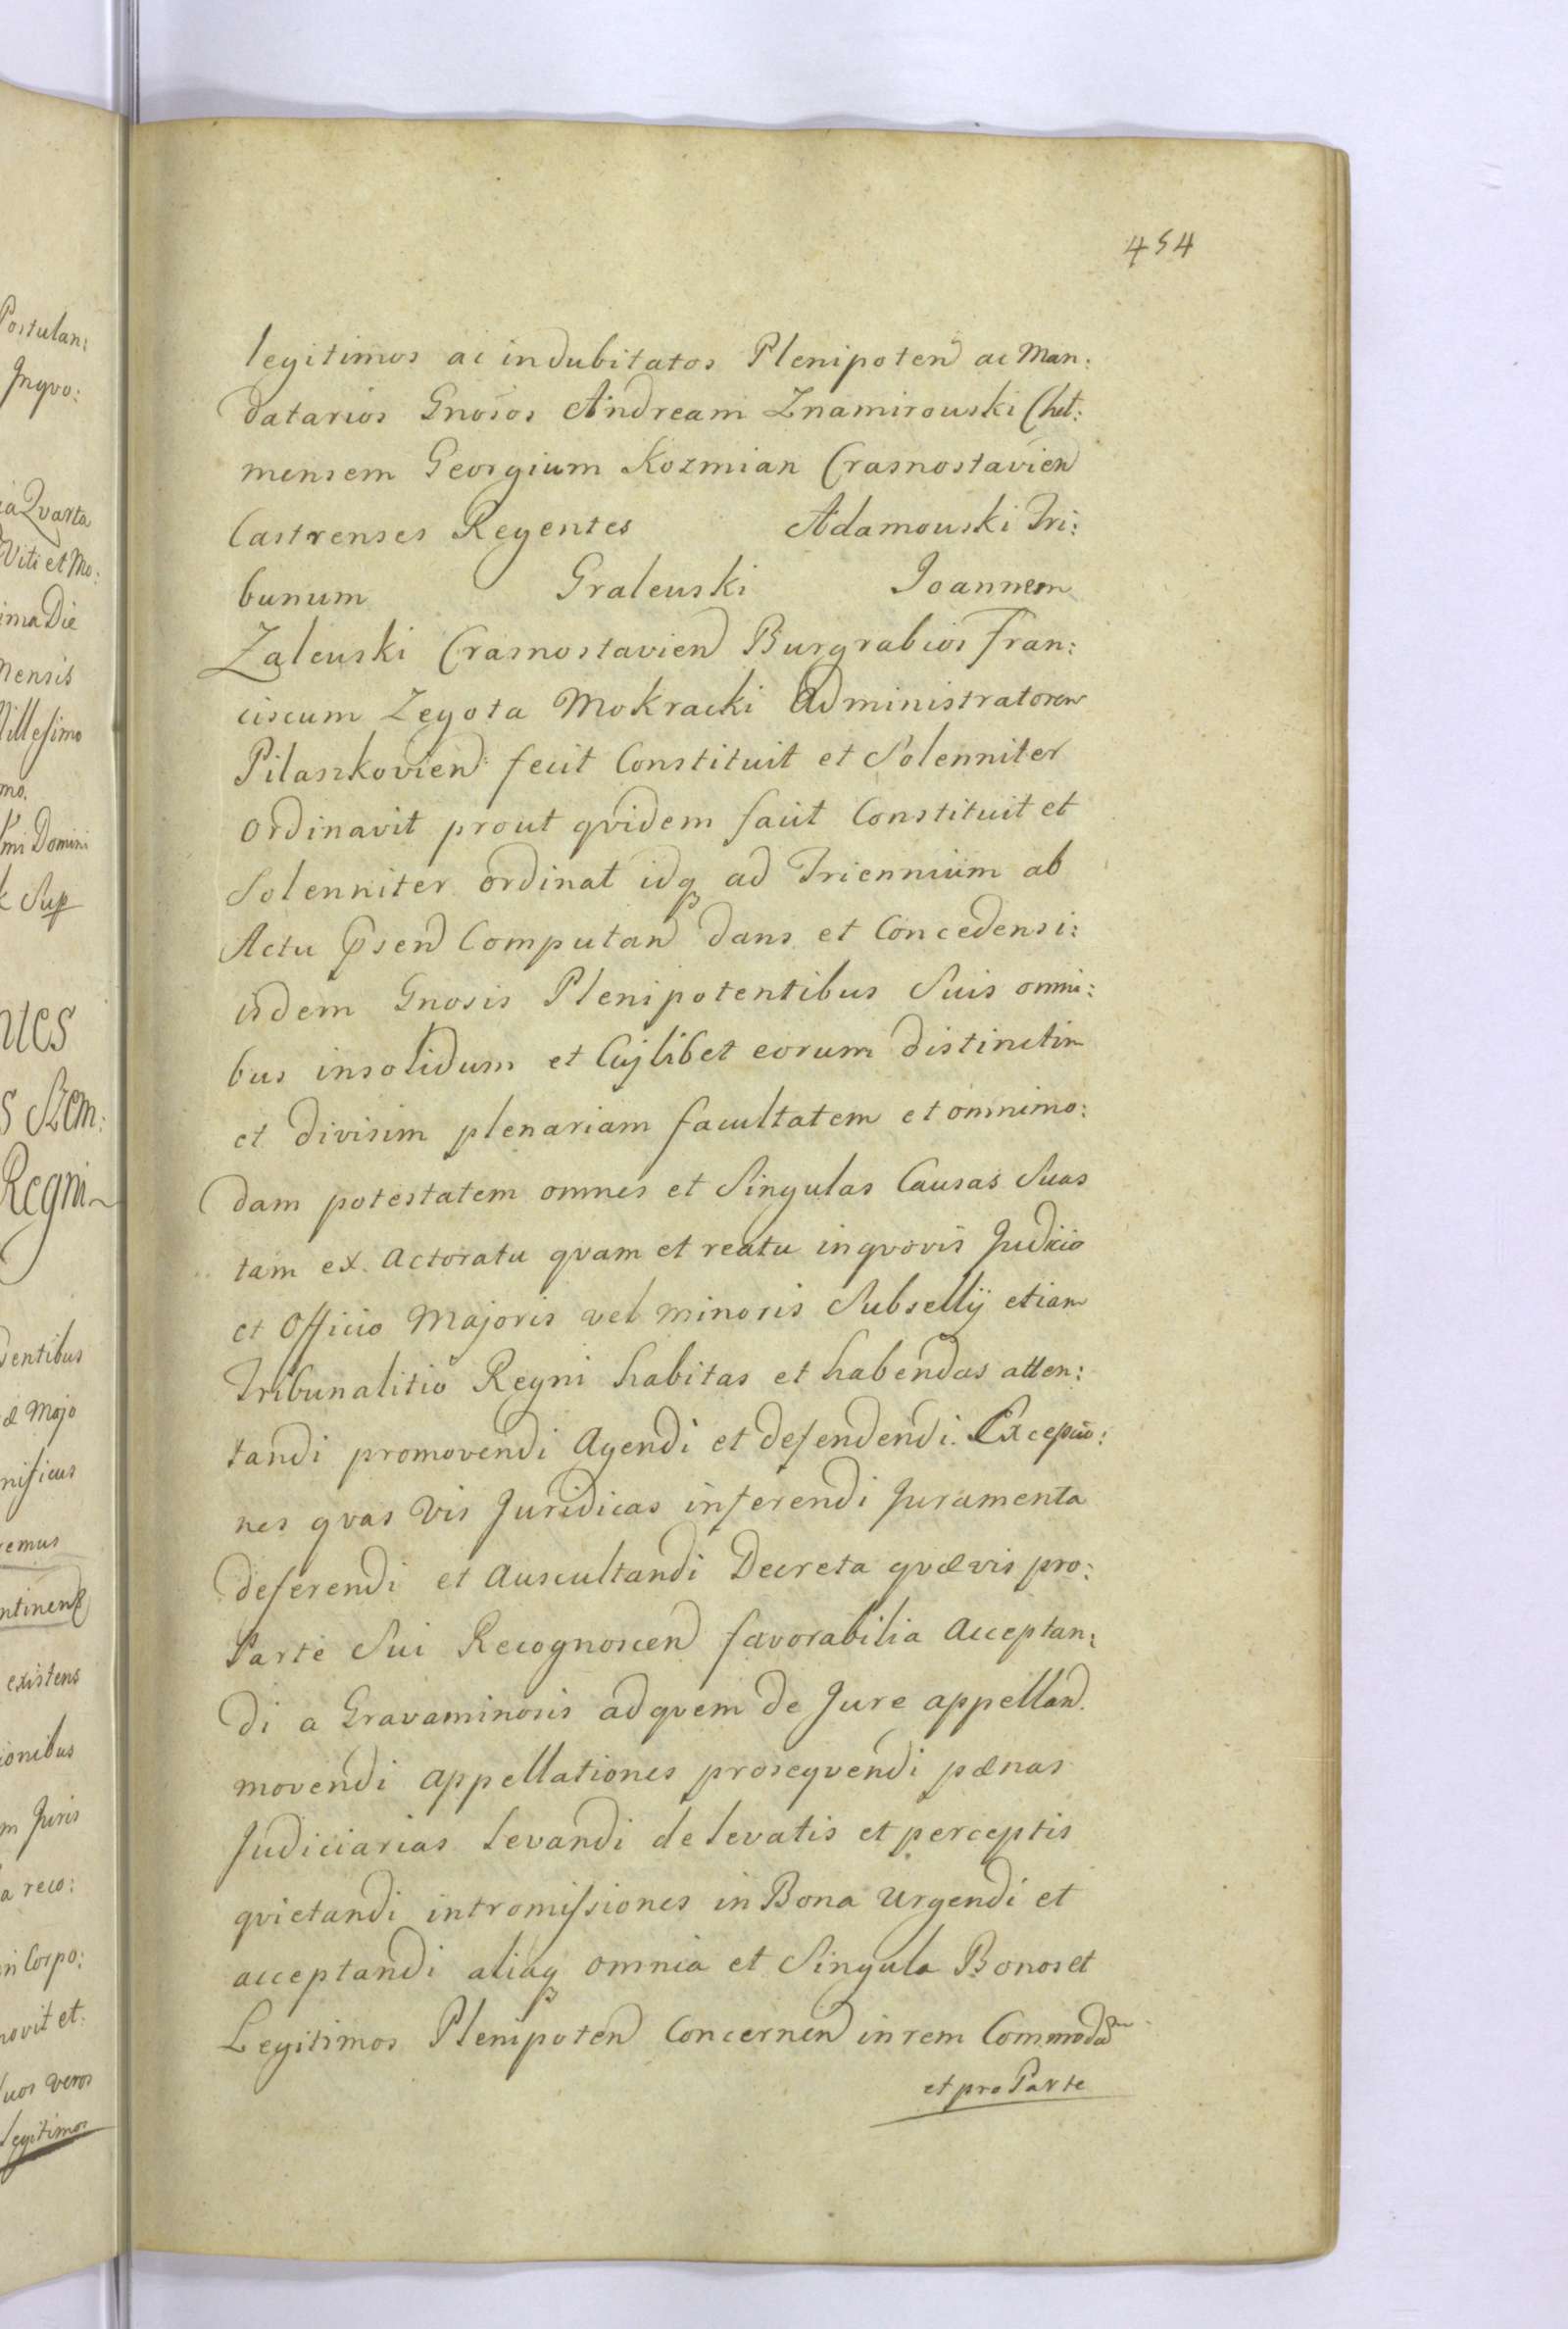 454
legitimos ac indubitatos Plenipoten ac Man:
datarios Gnosos Andream Znamirowski Chel:
mensem Georgium Kozmian Crasnostavien
Castrenses Regentes Adamowski Tri:
bunum Gralewski Joannem
Zalewski Crasnostavien Burgrabios Fran:
ciscum Zegota Mokracki Administratorem
Pilaszkovien: fecit Constituit et Solenniter
ordinavit prout qvidem facit Constituit et
Solenniter ordinat idq ad Triennium ab
Actu psen Computan dans et Concedens i:
isdem Gnosis Plenipotentibus Suis omni:
bus insolidum et Cujlibet eorum distinctim
et divisim plenariam facultatem et omnimo:
dam potestatem omnes et Singulas Causas Suas
tam ex Actoratu qvam et reatu inqvovis Judicio
et Officio Majoris vel minoris Subsellij etiam
Tribunalitio Regni habitas et habendas atten:
tandi promovendi Agendi et defendendi. Excepcio:
nes qvas vis Juridicas inferendi Juramenta
deferendi et Auscultandi Decreta qvævis pro:
Parte Sui Recognoscen favorabilia Acceptan:
di a Gravaminosis adqvem de Jure appellan.
movendi appellationes proseqvendi pænas
Judiciarias levandi de levatis et perceptis
qvietandi intromissiones in Bona Urgendi et
acceptandi aliaq omnia et Singula Bonos et
Legitimos Plenipoten Concernen in rem Commodam
et pro Parte
Postulan:
Jnqvo:
Qvarta
Viti et Mo:
ima Die
mensis
illesimo
mo.
mi Domini
Sup
ntes
s Szem:
Regni
dentibus
Majo
nificus
remus
ntinen
existens
ionibus
m Juris
a reco:
in Corpo:
novit et
suos veros
legitimos